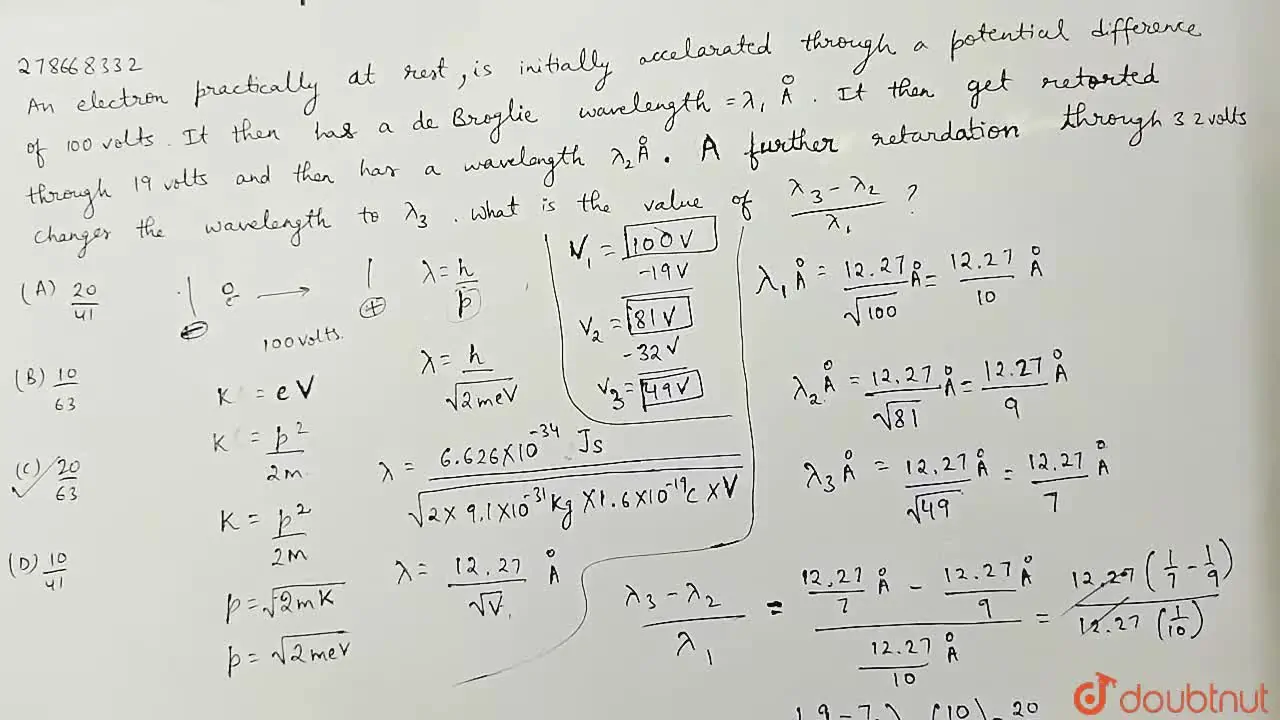 278668332
An electron practically at rest, is initially accelarated through a potential difference
of 100 volts. It then has a de Broglie wavelength = λ₁ Å. It then get retorted
through 19 volts and then has a wavelength λ₂Å. A further retardation through 32 volts
changes the wavelength to λ₃. What is the value of (λ₃ - λ₂)/λ₁ ?
(A) 20/41
(B) 10/63
(C) 20/63
(D) 10/41
⊖ e⁻ → ⊕
100 volts.
K = eV
K = p²/2m
K = p²/2m
p = √2mK
p = √2meV
λ = h/p
λ = h/√2meV
λ = 6.626×10⁻³⁴ Js / √2×9.1×10⁻³¹Kg×1.6×10⁻¹⁹C×V
λ = 12.27/√V Å
V₁ = 100V
-19V
V₂ = 81V
-32V
V₃ = 49V
λ₁Å = 12.27/√100 Å = 12.27/10 Å
λ₂Å = 12.27/√81 Å = 12.27/9 Å
λ₃Å = 12.27/√49 Å = 12.27/7 Å
(λ₃ - λ₂)/λ₁ = (12.27/7 Å - 12.27/9 Å)/(12.27/10 Å) = 12.27(1/7 - 1/9)/12.27(1/10)
(9-7) (10) = 20
doubtnut